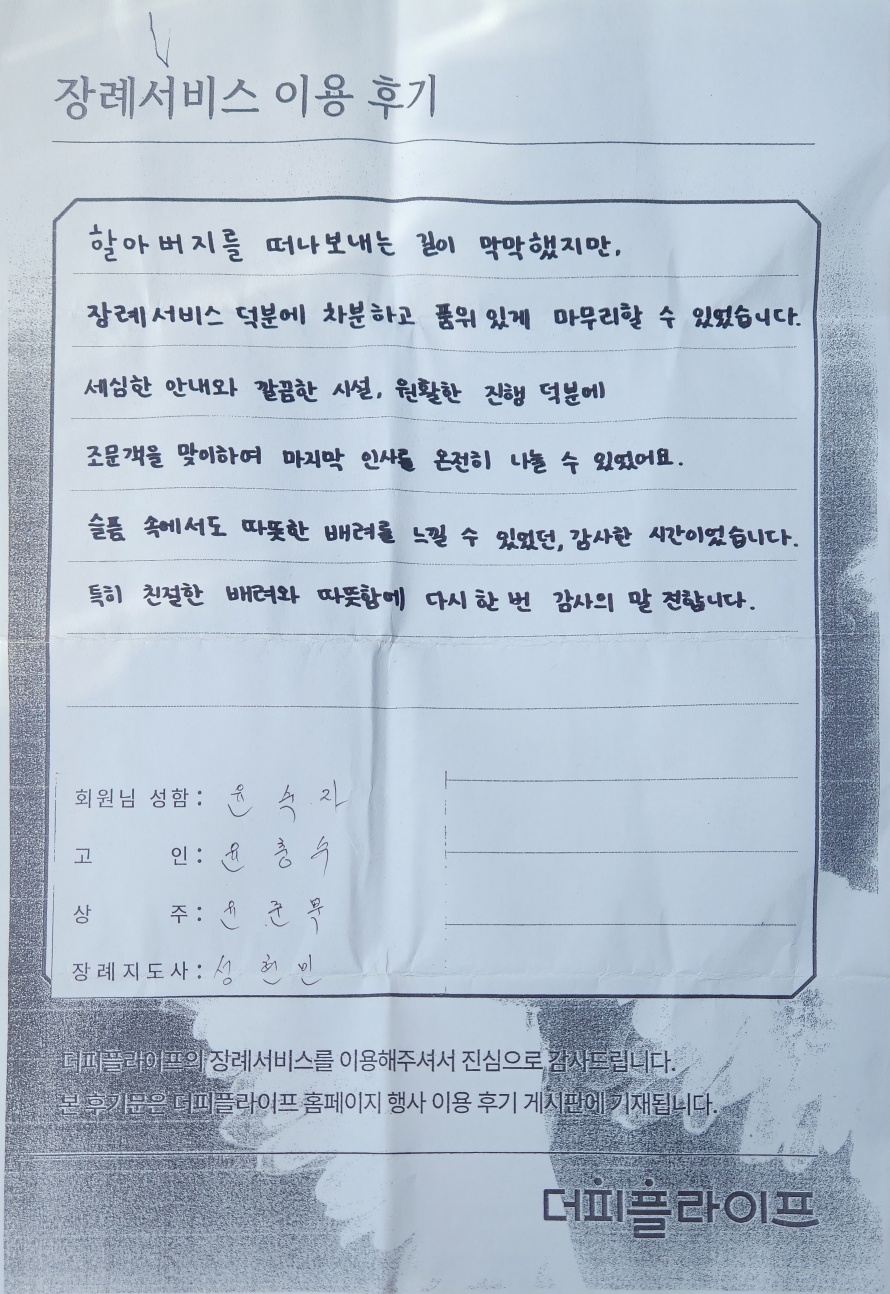 장례서비스 이용 후기
할아버지를 떠나보내는 길이 막막했지만,
장례서비스 덕분에 차분하고 품위 있게 마무리할 수 있었습니다.
세심한 안내와 깔끔한 시설, 원활한 진행 덕분에
조문객을 맞이하여 마지막 인사를 온전히 나눌 수 있었어요.
슬픔 속에서도 따뜻한 배려를 느낄 수 있었던, 감사한 시간이었습니다.
특히 친절한 배려와 따뜻함에 다시 한 번 감사의 말 전합니다.
회원님 성함 : 윤숙자
고 인 : 윤충수
상 주 : 윤준묵
장례지도사 : 성현민
더피플라이프의 장례서비스를 이용해주셔서 진심으로 감사드립니다.
본 후기문은 더피플라이프 홈페이지 행사 이용 후기 게시판에 기재됩니다.
더피플라이프